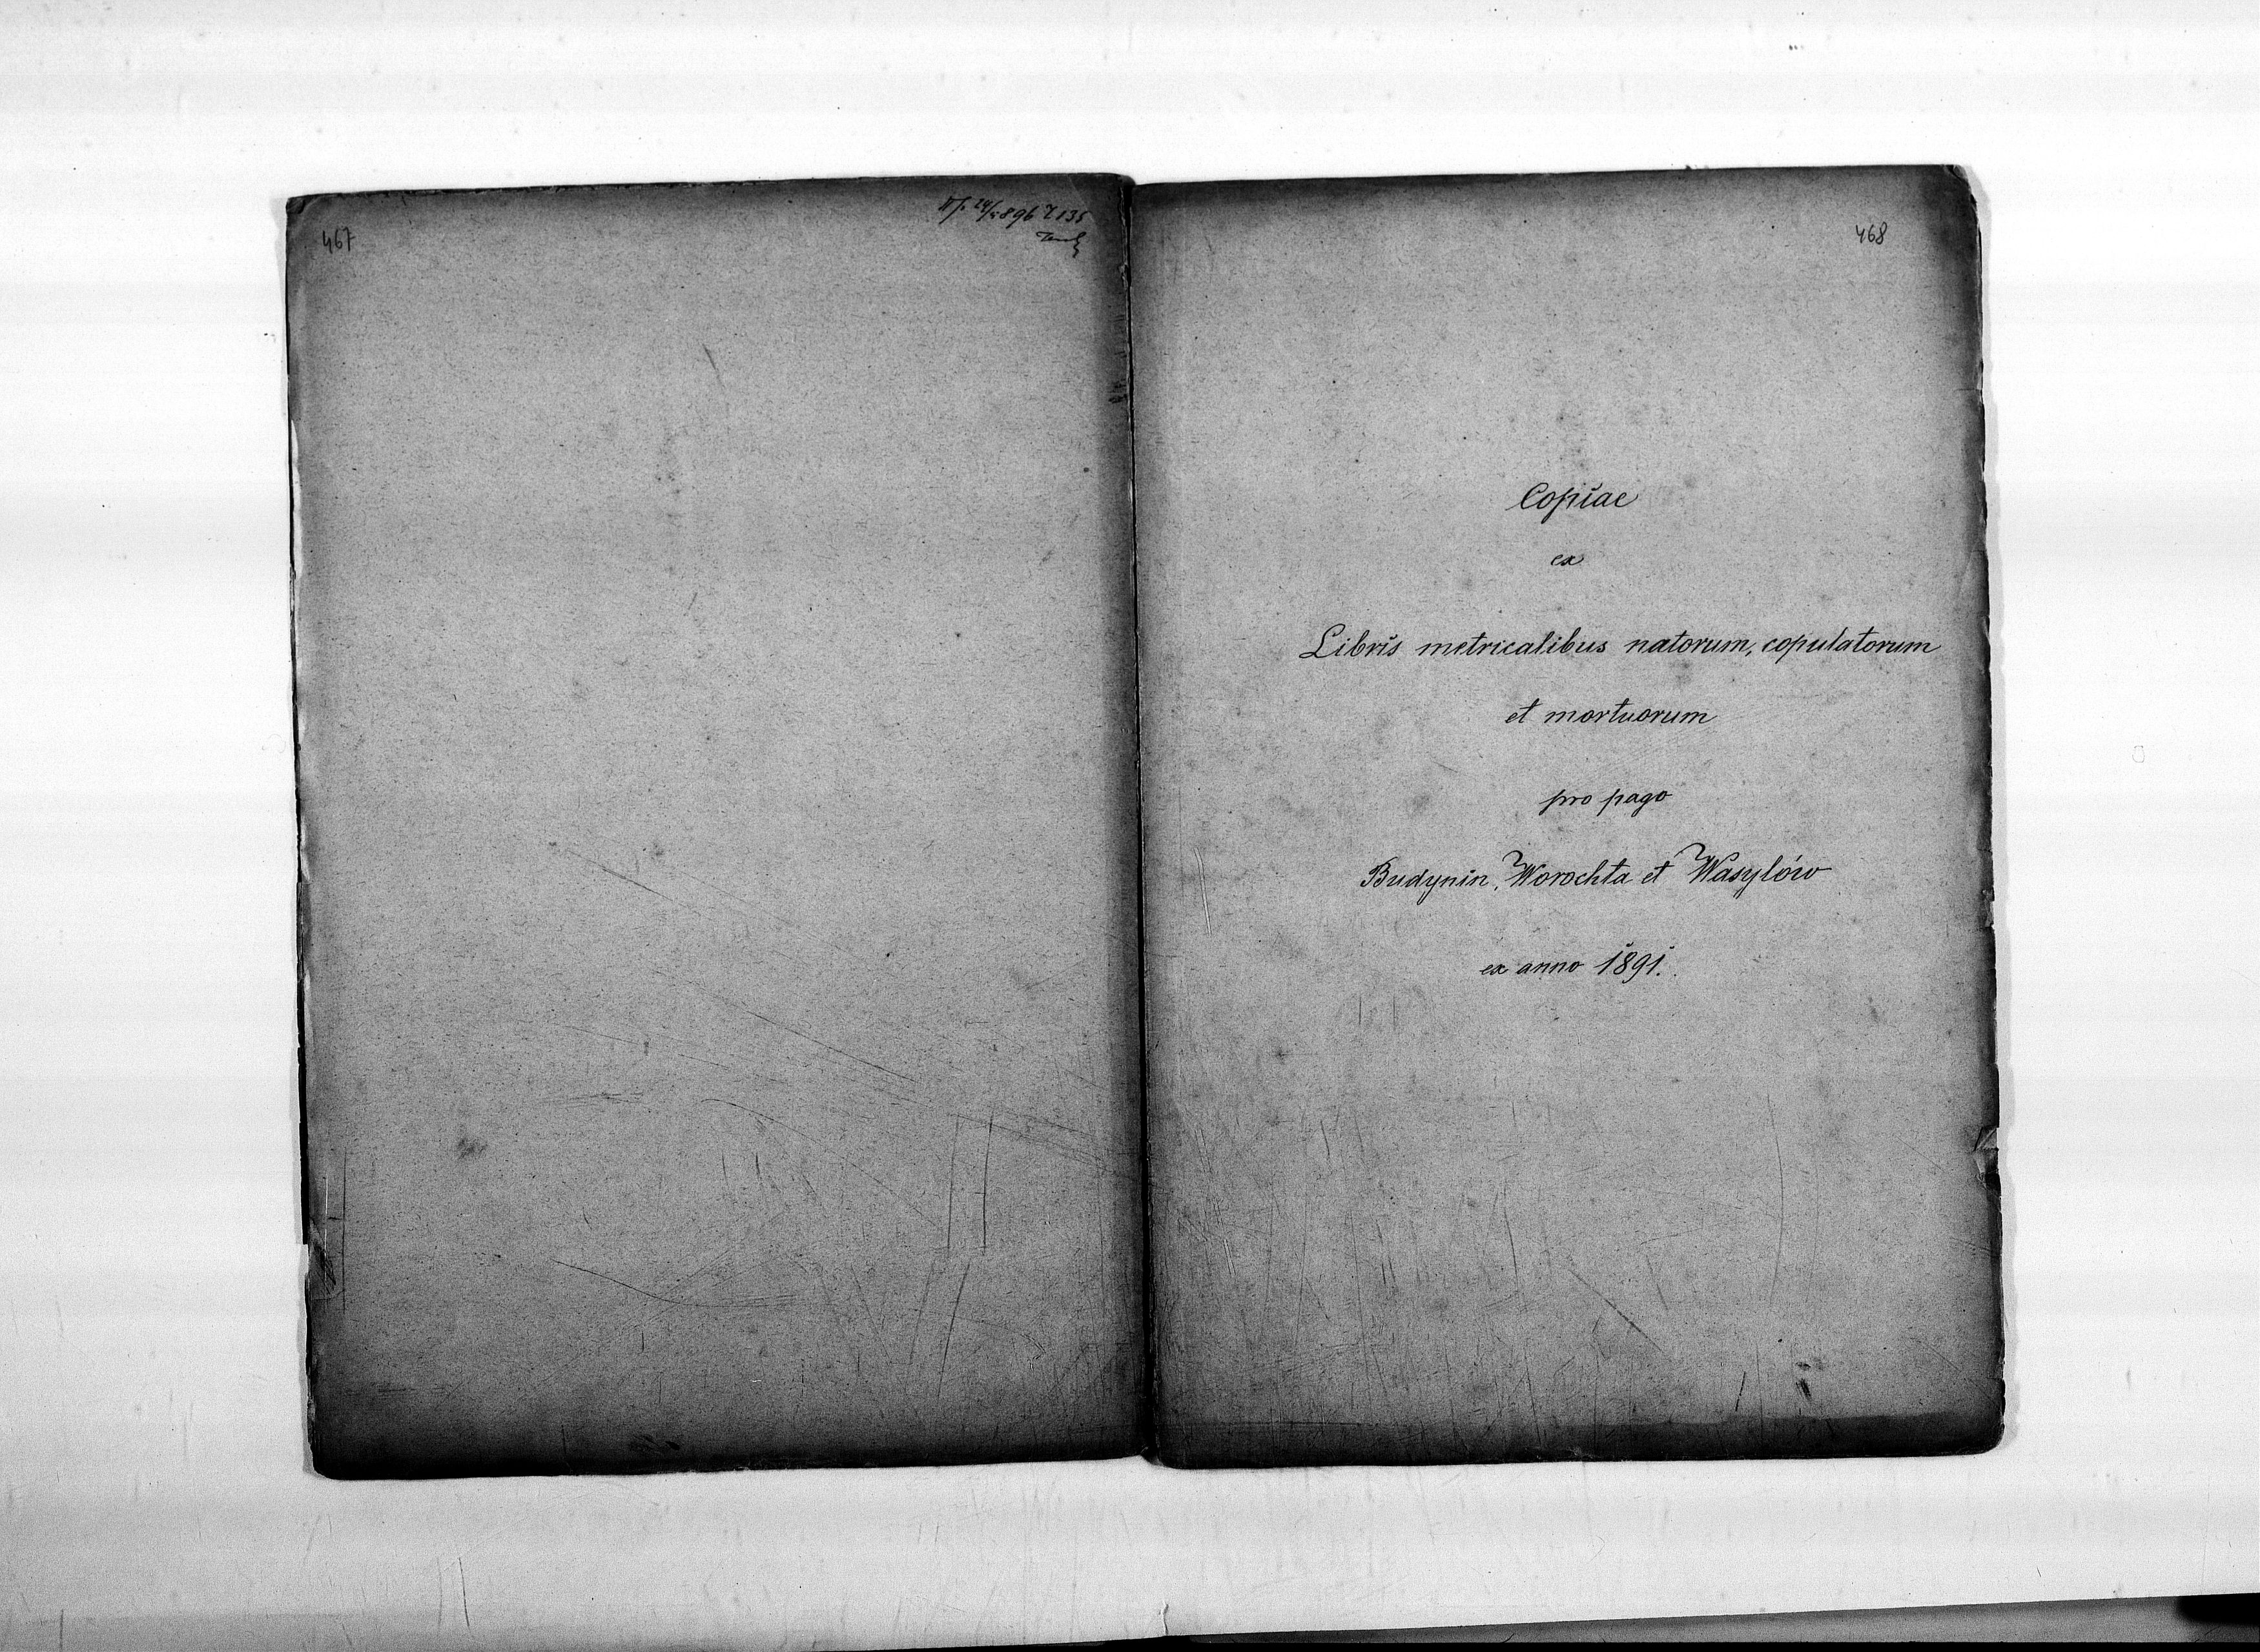 467
468
Copiae
ex
Libris metricalibus natorum, copulatorum
et mortuorum
pro pago
Budynin, Worochta et Wasylów
ex anno 1891.